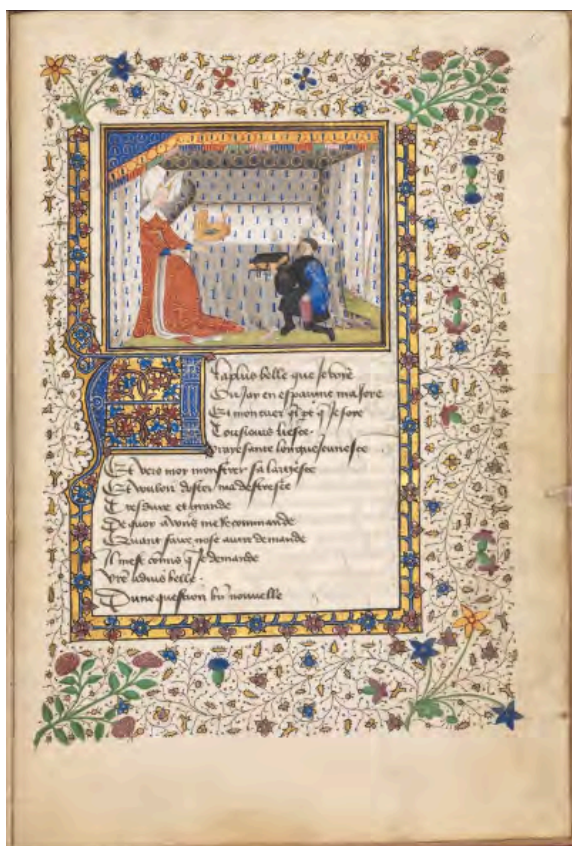 A la plus belle que Je voie
Ou Jay en esperance ma Joie
Et mon cuer q Je soie
Tousiours liesce
Plaisante longue Jeunesce
Et vers moy monstrer sa largesce
Et doster ma destresce
Tresdure et grande
De quoy a vous me Recommande
Quant faire nose autre demande
Il mest comis q Je demande
Vre aduis belle
Dune question bn nouuelle